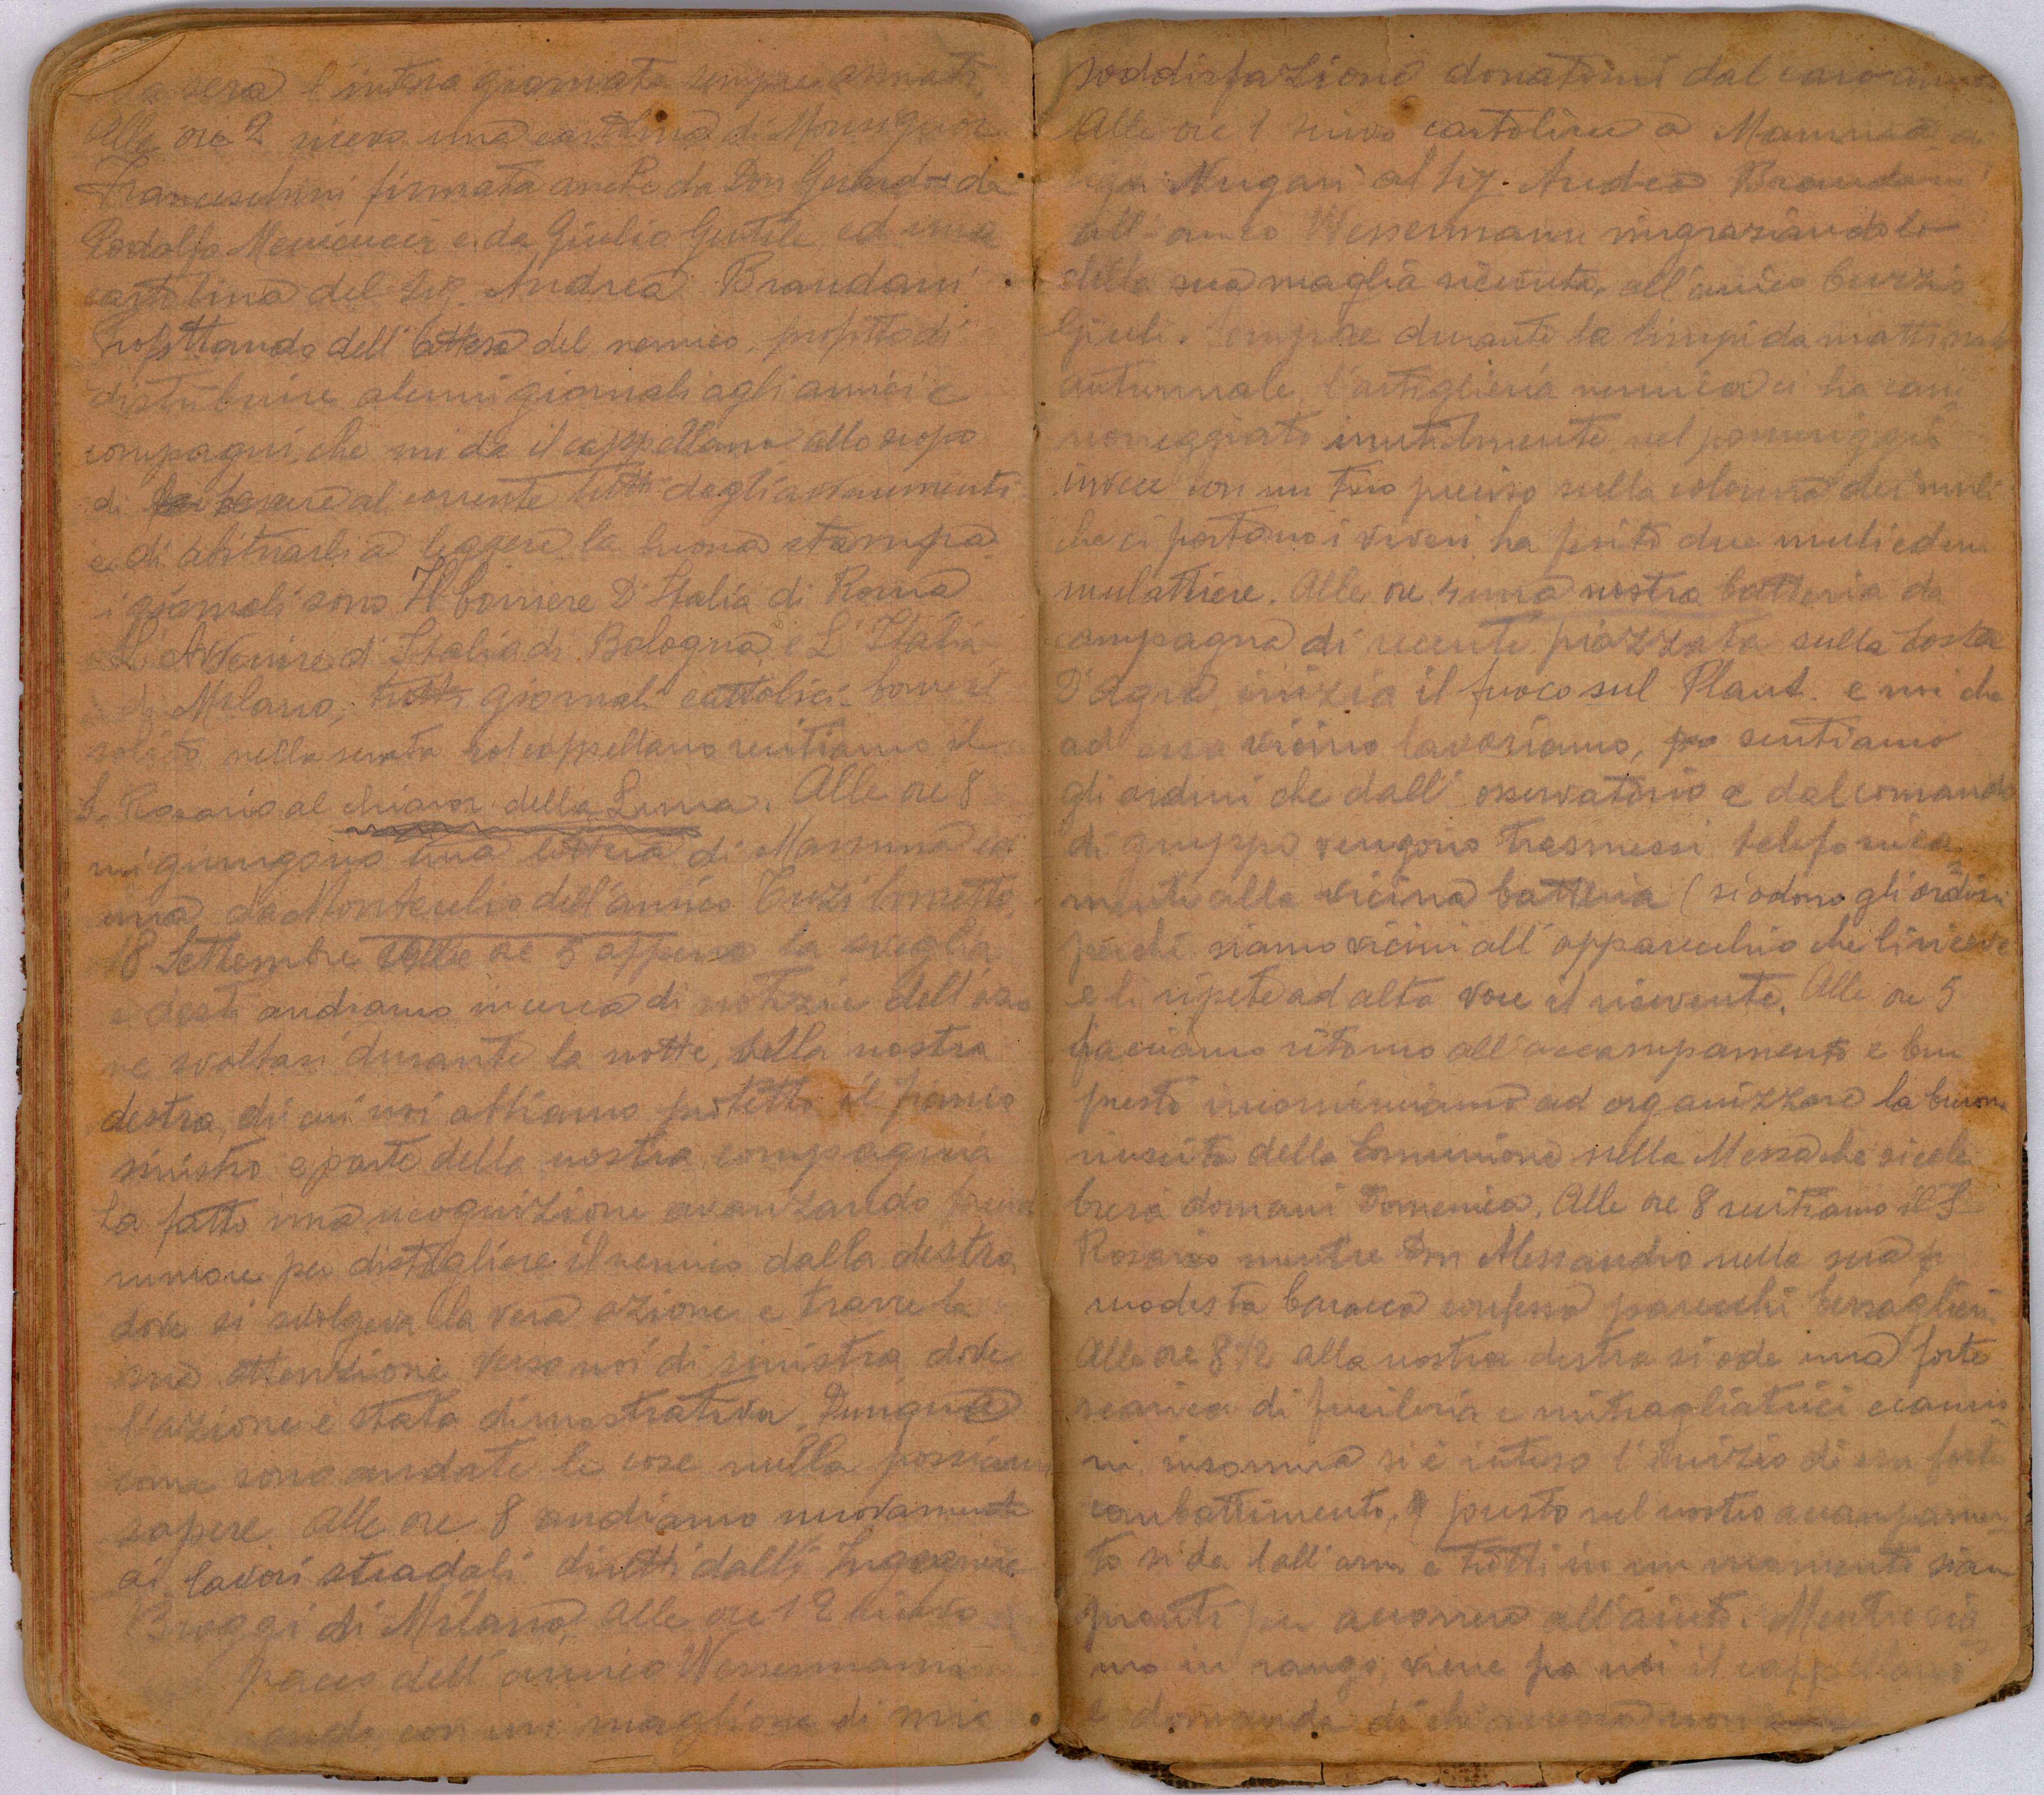 la sera l'intera giornata sempre armati.
Alle ore 2 ricevo una cartolina di Monsignor
Franceschini firmata anche da Don Gerardo da
Rodolfo Menicucci e da Giulio Gentile ed una
cartolina del Sig. Andrea Brandani
Profittando dell'attesa del nemico, profitto di
distribuire alcuni giornali agli amici e
compagni, che mi da il cappellano allo scopo
di tenere al corrente tutti degli avvenimenti
e di abituarli a leggere la buona stampa
i giornali sono Il Corriere D'Italia di Roma
L'Avvenire d'Italia di Bologna e L'Italia
di Milano, tutti giornali cattolici. Come il
solito nella serata col cappellano recitiamo il
S. Rosario al chiaror della Luna. Alle ore 8
mi giungono una lettera di Mamma ed
una da Montecelio dell'amico Tuzi
18 Settembre alle ore 5 appena la sveglia
e desti andiamo in cerca di notizie dell'azio
ne svoltasi durante la notte, sulla nostra
destra, di cui noi abbiamo protetto il fianco
sinistro e parte della nostra compagnia
ha fatto una ricognizione avanzando
rumore per distogliere il nemico dalla destra
dove si svolgeva la vera azione e trarre la
sua attenzione verso noi di sinistra, dove
l'azione è stata dimostrativa. Dunque
come sono andate le cose nulla possiamo
sapere. Alle ore 8 andiamo nuovamente
ai lavori stradali diretti dall'Ingegnere
Broggi di Milano. Alle ore 12 ricevo
pacco dell'amico Wessermann
con un maglione di mia
soddisfazione donatomi dal caro
Alle ore 1 scrivo cartoline a Mamma
Nugari al Sig. Andrea Brandani
all'amico Wessermann ringraziandolo
della sua maglia ricevuta, all'amico Curzio
Giuli. Sempre durante la limpida mattinata
autunnale, l'artiglieria nemica ci ha can
noneggiato inutilmente, nel pomeriggio
invece con un tiro preciso sulla colonna dei muli
che ci portano i viveri ha ferito due muli ed un
mulattiere. Alle ore 4 una nostra batteria da
campagna di recente piazzata sulla Costa
D'Agra, inizia il fuoco sul Plaut. e noi che
ad essa vicino lavoriamo, sentiamo
gli ordini che dall'osservatorio e dal comando
di gruppo vengono trasmessi telefonica
mente alla vicina batteria (si odono gli ordini
perché siamo vicini all'apparecchio che li riceve
e li ripete ad alta voce il ricevente. Alle ore 5
facciamo ritorno all'accampamento e ben
presto incominciamo ad organizzare la buona
riuscita della Comunione nella Messa che si cele
brerà domani Domenica. Alle ore 8 recitiamo il S.
Rosario mentre Don Alessandro nella sua
modesta baracca confessa parecchi bersaglieri
Alle ore 8 1/2 alla nostra destra si ode una forte
scarica di fucileria e mitragliatrici e canno
ni, insomma si è inteso l'inizio di un forte
combattimento, presto nel nostro accampamen
to si da l'all'armi e tutti in un momento siam
pronti per accorrere all'aiuto. Mentre sia
mo in rango, viene fra noi il cappellano
e domanda di chi ancora non